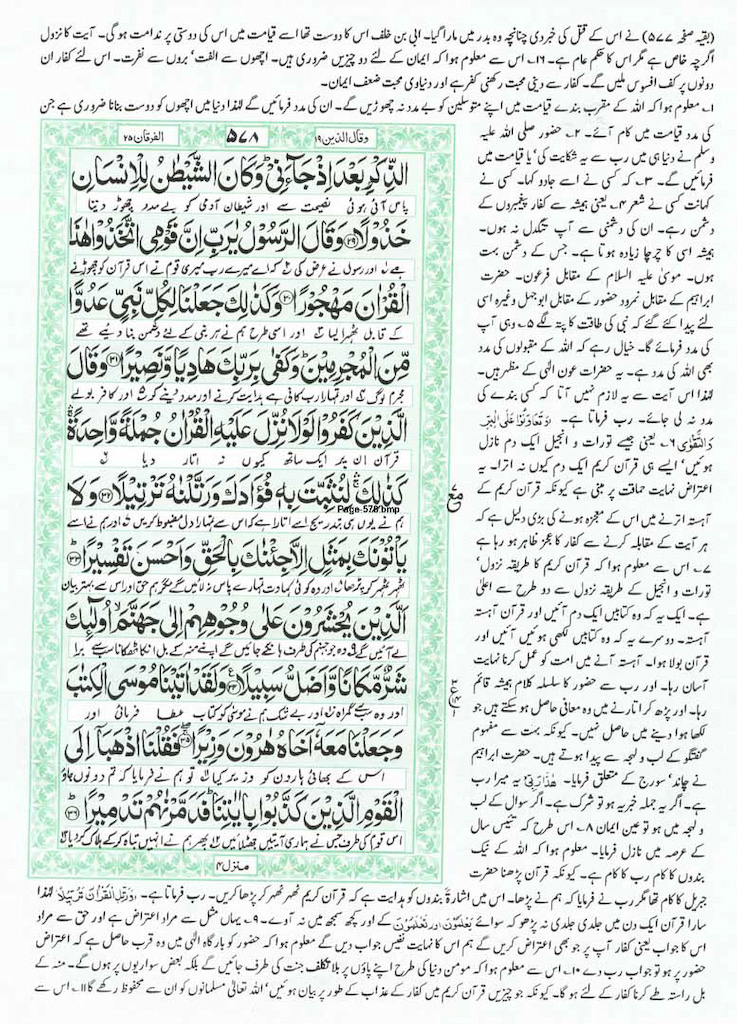 (بقیہ صفحہ ۵۷۷) نے اس کے قتل کی خبر دی چنانچہ وہ بدر میں مارا گیا۔ ابی بن خلف اس کا دوست تھا اسے قیامت میں اس کی دوستی پر ندامت ہو گی۔ آیت کا نزول
اگرچہ خاص ہے مگر اس کا حکم عام ہے۔ ۱۶۔ اس سے معلوم ہوا کہ ایمان کے لئے دو چیزیں ضروری ہیں۔ اچھوں سے الفت' بروں سے نفرت۔ اس لئے کفار ان
دونوں پر کف افسوس ملیں گے۔ کفار سے دینی محبت رکھنی کفر ہے اور دنیاوی محبت ضعف ایمان۔
۱۔ معلوم ہوا کہ اللہ کے مقرب بندے قیامت میں اپنے متوسلین کو بے مدد نہ چھوڑیں گے۔ ان کی مدد فرمائیں گے لہٰذا دنیا میں اچھوں کو دوست بنانا ضروری ہے جن
کی مدد قیامت میں کام آئے۔ ۲۔ حضور صلی اللہ علیہ
وسلم نے دنیا ہی میں رب سے یہ شکایت کی' یا قیامت میں
فرمائیں گے۔ ۳۔ کہ کسی نے اسے جادو کہا۔ کسی نے
کہانت کسی نے شعر ۴۔ یعنی ہمیشہ سے کفار پیغمبروں کے
دشمن رہے۔ ان کی دشمنی سے آپ تنگدل نہ ہوں۔
ہمیشہ اسی کا چرچا زیادہ ہوتا ہے۔ جس کے دشمن بہت
ہوں۔ موسیٰ علیہ السلام کے مقابل فرعون۔ حضرت
ابراہیم کے مقابل نمرود حضور کے مقابل ابوجہل وغیرہ اسی
لئے پیدا کئے گئے کہ نبی کی طاقت کا پتہ لگے ۵۔ وہی آپ
کی مدد فرمائے گا۔ خیال رہے کہ اللہ کے مقبولوں کی مدد
بھی اللہ کی مدد ہے۔ یہ حضرات عون الٰہی کے مظہر ہیں۔
لہٰذا اس آیت سے یہ لازم نہیں آتا کہ کسی بندے کی
مدد نہ لی جائے۔ رب فرماتا ہے۔ وَتَعَاوَنُوْا عَلَى الْبِرِّ
وَالتَّقْوٰى ۶۔ یعنی جیسے تورات و انجیل ایک دم نازل
ہوئیں' ایسے ہی قرآن کریم ایک دم کیوں نہ اترا۔ یہ
اعتراض نہایت حماقت پر مبنی ہے کیونکہ قرآن کریم کے
آہستہ اترنے میں اس کے معجزہ ہونے کی بڑی دلیل ہے کہ
ہر آیت کے مقابلہ کرنے سے کفار کا عجز ظاہر ہو رہا ہے
۷۔ اس سے معلوم ہوا کہ قرآن کریم کا طریقہ نزول'
تورات و انجیل کے طریقہ نزول سے دو طرح سے اعلیٰ
ہے۔ ایک یہ کہ وہ کتابیں ایک دم آئیں اور قرآن آہستہ
آہستہ۔ دوسرے یہ کہ وہ کتابیں لکھی ہوئیں آئیں اور
قرآن بولا ہوا۔ آہستہ آنے میں امت کو عمل کرنا نہایت
آسان رہا۔ اور رب سے حضور کا سلسلہ کلام ہمیشہ قائم
رہا۔ اور پڑھ کر اتارنے میں وہ معانی حاصل ہو سکتے ہیں جو
لکھا ہوا دینے میں حاصل نہیں۔ کیونکہ بہت سے مفہوم
گفتگو کے لب و لہجہ سے پیدا ہوتے ہیں۔ حضرت ابراہیم
نے چاند' سورج کے متعلق فرمایا۔ هٰذَا رَبِّىْ یہ میرا رب
ہے۔ اگر یہ جملہ خبریہ ہو تو شرک ہے۔ اگر سوال کے لب
و لہجہ میں ہو تو عین ایمان ۸۔ اس طرح کہ تئیس سال
کے عرصہ میں نازل فرمایا۔ معلوم ہوا کہ اللہ کے نیک
بندوں کا کام رب کا کام ہے۔ کیونکہ قرآن پڑھنا حضرت
وقال الذین ۱۹
۵۷۸
الفرقان ۲۵
الذِّكْرِ بَعْدَ اِذْ جَآءَنِيْ ؕ وَكَانَ الشَّيْطٰنُ لِلْاِنْسَانِ
پاس آئی ہوئی نصیحت سے اور شیطان آدمی کو بے مدد چھوڑ دیتا
خَذُوْلًا ۝۲۹ وَقَالَ الرَّسُوْلُ يٰرَبِّ اِنَّ قَوْمِي اتَّخَذُوْا هٰذَا
ہے اور رسول نے عرض کی کہ اے میرے رب میری قوم نے اس قرآن کو چھوڑنے
الْقُرْاٰنَ مَهْجُوْرًا ۝۳۰ وَكَذٰلِكَ جَعَلْنَا لِكُلِّ نَبِيٍّ عَدُوًّا
کے قابل ٹھہرا لیا اور اسی طرح ہم نے ہر نبی کے لئے دشمن بنا دیے تھے
مِّنَ الْمُجْرِمِيْنَ ؕ وَكَفٰى بِرَبِّكَ هَادِيًا وَّنَصِيْرًا ۝۳۱ وَقَالَ
مجرم لوگ اور تمہارا رب کافی ہے ہدایت کرنے اور مدد دینے کو اور کافر بولے
الَّذِيْنَ كَفَرُوْا لَوْلَا نُزِّلَ عَلَيْهِ الْقُرْاٰنُ جُمْلَةً وَّاحِدَةً ۛ
قرآن ان پر ایک ساتھ کیوں نہ اتار دیا
كَذٰلِكَ ۛ لِنُثَبِّتَ بِهٖ فُؤَادَكَ وَرَتَّلْنٰهُ تَرْتِيْلًا ۝۳۲ وَلَا
Page-578.bmp
ہم نے یوں ہی بتدریج اسے اتارا ہے کہ اس سے تمہارا دل مضبوط کریں اور ہم نے اسے
يَاْتُوْنَكَ بِمَثَلٍ اِلَّا جِئْنٰكَ بِالْحَقِّ وَاَحْسَنَ تَفْسِيْرًا ۝۳۳
ٹھہر ٹھہر کر پڑھا اور وہ کوئی کہاوت تمہارے پاس نہ لائیں گے مگر ہم حق اور اس سے بہتر بیان
اَلَّذِيْنَ يُحْشَرُوْنَ عَلٰى وُجُوْهِهِمْ اِلٰى جَهَنَّمَ ۙ اُولٰٓئِكَ
لے آئیں گے وہ جو جہنم کی طرف ہانکے جائیں گے اپنے منہ کے بل ان کا ٹھکانا سب سے برا
شَرٌّ مَّكَانًا وَّاَضَلُّ سَبِيْلًا ۝۳۴ وَلَقَدْ اٰتَيْنَا مُوْسَى الْكِتٰبَ
اور وہ سب سے گمراہ اور بے شک ہم نے موسیٰ کو کتاب عطا فرمائی اور
وَجَعَلْنَا مَعَهٗٓ اَخَاهُ هٰرُوْنَ وَزِيْرًا ۝۳۵ فَقُلْنَا اذْهَبَآ اِلَى
اس کے بھائی ہارون کو وزیر کیا تو ہم نے فرمایا کہ تم دونوں جاؤ
الْقَوْمِ الَّذِيْنَ كَذَّبُوْا بِاٰيٰتِنَا ؕ فَدَمَّرْنٰهُمْ تَدْمِيْرًا ۝۳۶
اس قوم کی طرف جس نے ہماری آیتیں جھٹلائیں پھر ہم نے انہیں تباہ کر کے ہلاک کر دیا
منزل ۴
جبریل کا کام تھا مگر رب نے فرمایا کہ ہم نے پڑھا۔ اس میں اشارۃً بندوں کو ہدایت ہے کہ قرآن کریم ٹھہر ٹھہر کر پڑھا کریں۔ رب فرماتا ہے۔ وَرَتِّلِ الْقُرْاٰنَ تَرْتِيْلًا لہٰذا
سارا قرآن ایک دن میں جلدی جلدی نہ پڑھو کہ سوائے يَعْلَمُوْنَ اور تَعْلَمُوْنَ کے اور کچھ سمجھ میں نہ آوے۔ ۹۔ یہاں مثل سے مراد اعتراض ہے اور حق سے مراد
اس کا جواب یعنی کفار آپ پر جو بھی اعتراض کریں گے ہم اس کا نہایت نفیس جواب دیں گے معلوم ہوا کہ حضور کو بارگاہ الٰہی میں وہ قرب حاصل ہے کہ اعتراض
حضور پر ہو تو جواب رب دے ۱۰۔ اس سے معلوم ہوا کہ مومن دنیا کی طرح اپنے پاؤں پر بلا تکلف جنت کی طرف جائیں گے بلکہ بعض سواریوں پر ہوں گے۔ منہ کے
بل راستہ طے کرنا کفار کے لئے ہو گا۔ کیونکہ جو چیزیں قرآن کریم میں کفار کے عذاب کے طور پر بیان ہوئیں' اللہ تعالیٰ مسلمانوں کو ان سے محفوظ رکھے گا ۱۱۔ اس سے